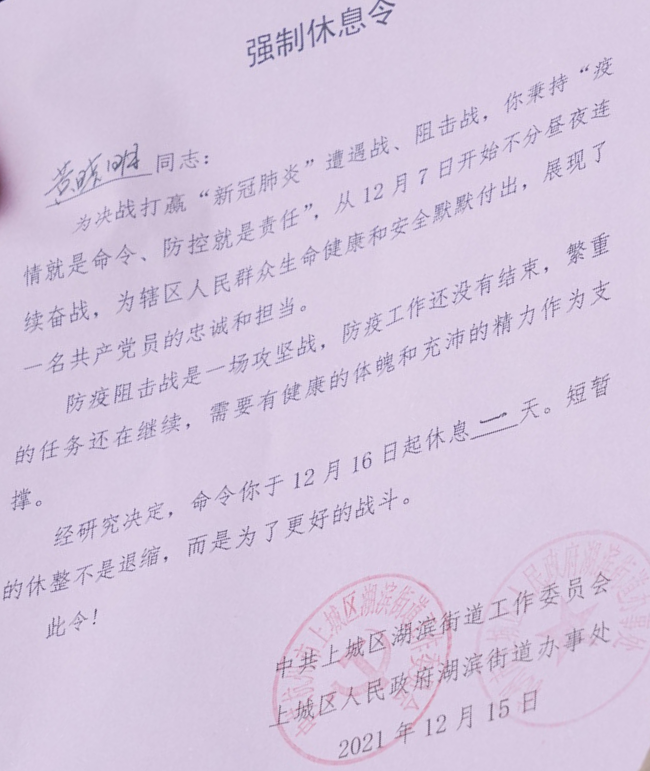 强制休息令
黄晓明同志：
为决战打赢“新冠肺炎”遭遇战、阻击战，你秉持“疫
情就是命令、防控就是责任”，从12月7日开始不分昼夜连
续奋战，为辖区人民群众生命健康和安全默默付出，展现了
一名共产党员的忠诚和担当。
防疫阻击战是一场攻坚战，防疫工作还没有结束，繁重
的任务还在继续，需要有健康的体魄和充沛的精力作为支
撑。
经研究决定，命令你于12月16日起休息一天。短暂
的休整不是退缩，而是为了更好的战斗。
此令！
中共上城区湖滨街道工作委员会
上城区人民政府湖滨街道办事处
2021年12月15日